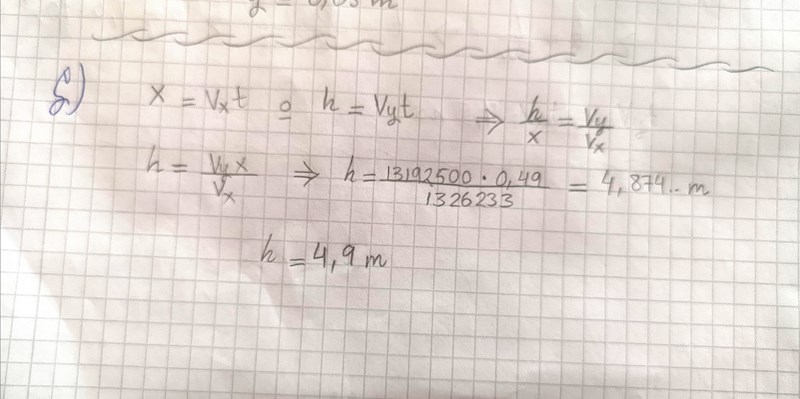 y = 0,05 m
x = Vxt o h = Vyt ⇒ h/x = Vy/Vx
h = Vyx/Vx ⇒ h = 13192500 · 0,49/1326233 = 4,874.. m
h = 4,9 m